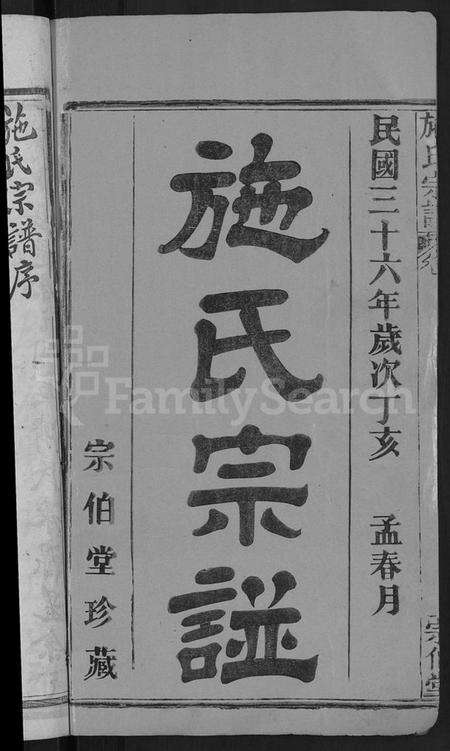 民國三十六年歲次丁亥　孟春月
施氏宗譜
宗伯堂珍藏
施氏宗譜序
FamilySearch